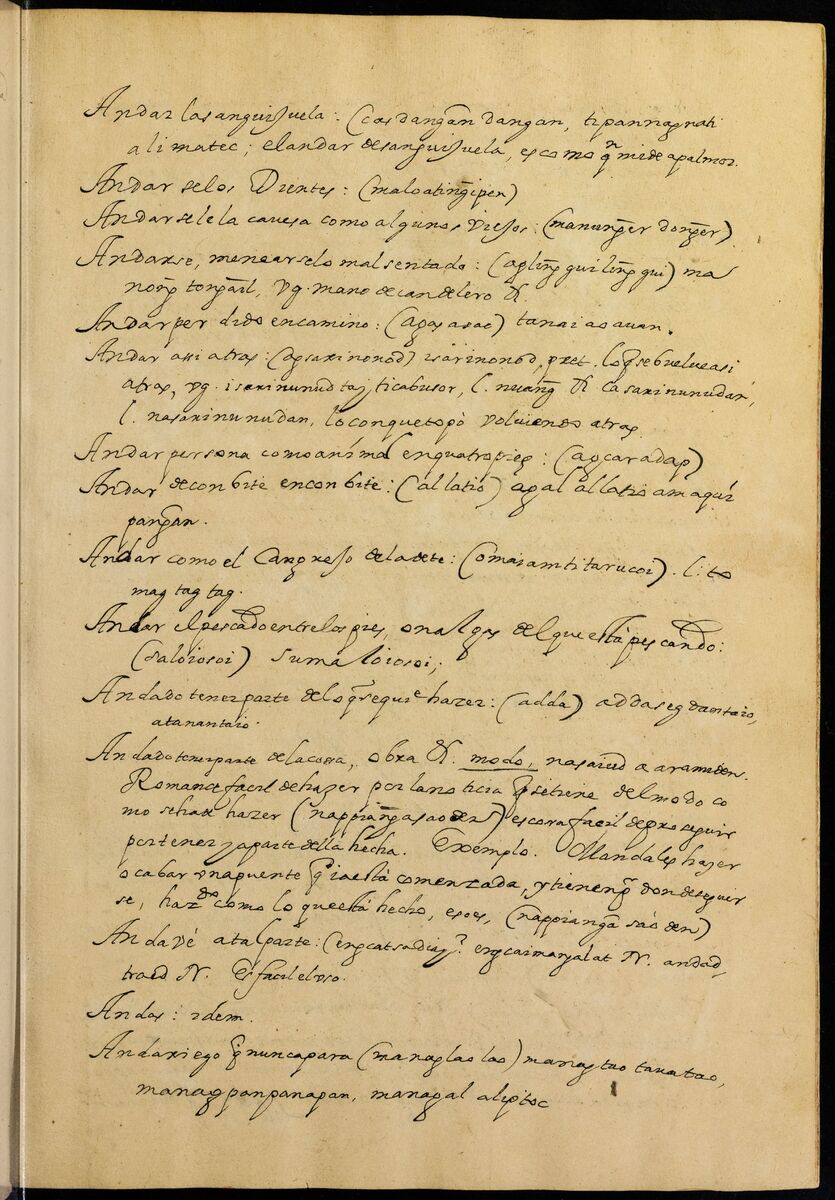 Andar la sanguijuela: (cas dangãn dangan, tipannagnati
alimatec; el andar de sanguijuela, es como q̃ mide a palmos.
Andar se los Dientes: (maloating̃ipen)
Andarsele la cavesa como algunos viejos: (manung̃er dong̃er)
Andarse, menearse lo mal sentado: (agling̃guiling̃gui) ma
nong̃ tong̃ail, vg. mano de candelero &.
Andar perdido en camino: (agasasao) tanaiasauan.
Andar asi atras: (agsarinonod) isarinonod, pret. lo q̃ se buelue asi
atras, vg. isarinunud taj ticabusor, l. nuang̃ & casarinunudan,
l. nasarinunudan, lo con que topò volviendo atras
Andar persona como anímal en quatro pies: (agcaradap)
Andar de conbite en conbite: (allatio) agalallatio amaquí
pang̃an.
Andar como el Cangrejo de la dete: (omaiamti tarucoi). l: to
mag tag tag.
Andar el pescado entre los pies, o nalgas del que está pescando:
(saloiosoi) sumaloiosoi;
Andado tener parte de lo q̃ se quiere hazer: (adda) addaseg
atanantaio.
Andado tener parte de la cosa, obra &. modo, nasaiud a aramiden.
Romance facil de hazer por la noticia q̃ se tiene del modo co
mo se ha de hazer (nappiang̃asaoden) es cosa facil de proseguir
por tener ya parte della hecha. Exemplo. Mandales hazer
o cabar vna puente q̃ ia està comenzada, y tienen p. donde seguir
se, haz como lo que està hecho, eso es, (nappiang̃a sáo den)
Andavé a tal parte: (engcatsadiay. engcaimanjalat N. andad,
traed N. Es facil el vso.
Andas: idem.
Andariego q̃ nunca para (managlaolao) managtao tauatao,
managpanpanapan, managal aliptoc